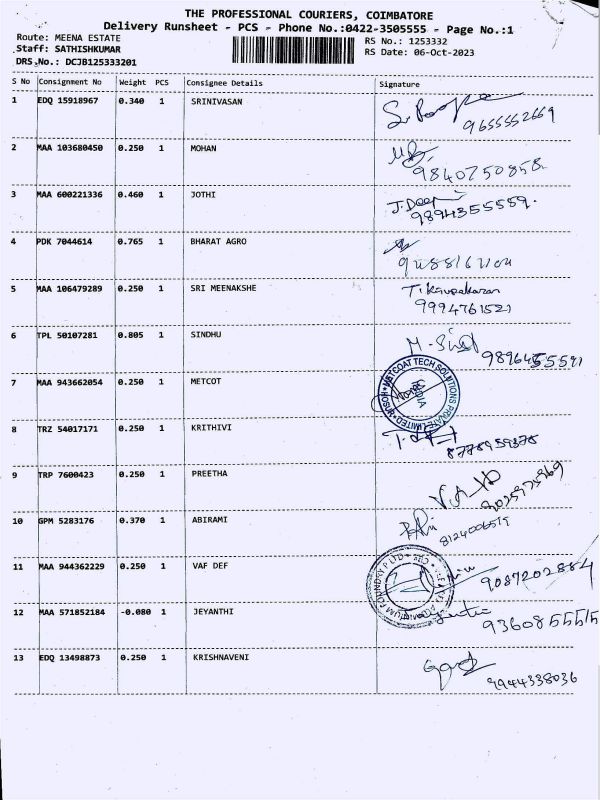 THE PROFESSIONAL COURIERS, COIMBATORE
Delivery Runsheet - PCS - Phone No.:0422-3505555 - Page No.:1
Route: MEENA ESTATE
RS No.: 1253332
Staff: SATHISHKUMAR
RS Date: 06-Oct-2023
DRS.No.: DCJB125333201
S No Consignment No Weight PCS Consignee Details Signature
1 EDQ 15918967 0.340 1 SRINIVASAN
9655552669
2 MAA 103680450 0.250 1 MOHAN
9840750858
3 MAA 600221336 0.460 1 JOTHI J.Deep
9894355559.
4 PDK 7044614 0.765 1 BHARAT AGRO
5 MAA 106479289 0.250 1 SRI MEENAKSHE
9994761521
6 TPL 50107281 0.805 1 SINDHU
9896455591
7 MAA 943662054 0.250 1 METCOT
METCOAT TECH SOLUTIONS PRIVATE LIMITED
8 TRZ 54017171 0.250 1 KRITHIVI
8778959378
9 TRP 7600423 0.250 1 PREETHA
10 GPM 5283176 0.370 1 ABIRAMI
8124006519
11 MAA 944362229 0.250 1 VAF DEF
9087202884
12 MAA 571852184 -0.080 1 JEYANTHI
9360855515
13 EDQ 13498873 0.250 1 KRISHNAVENI
9944338036